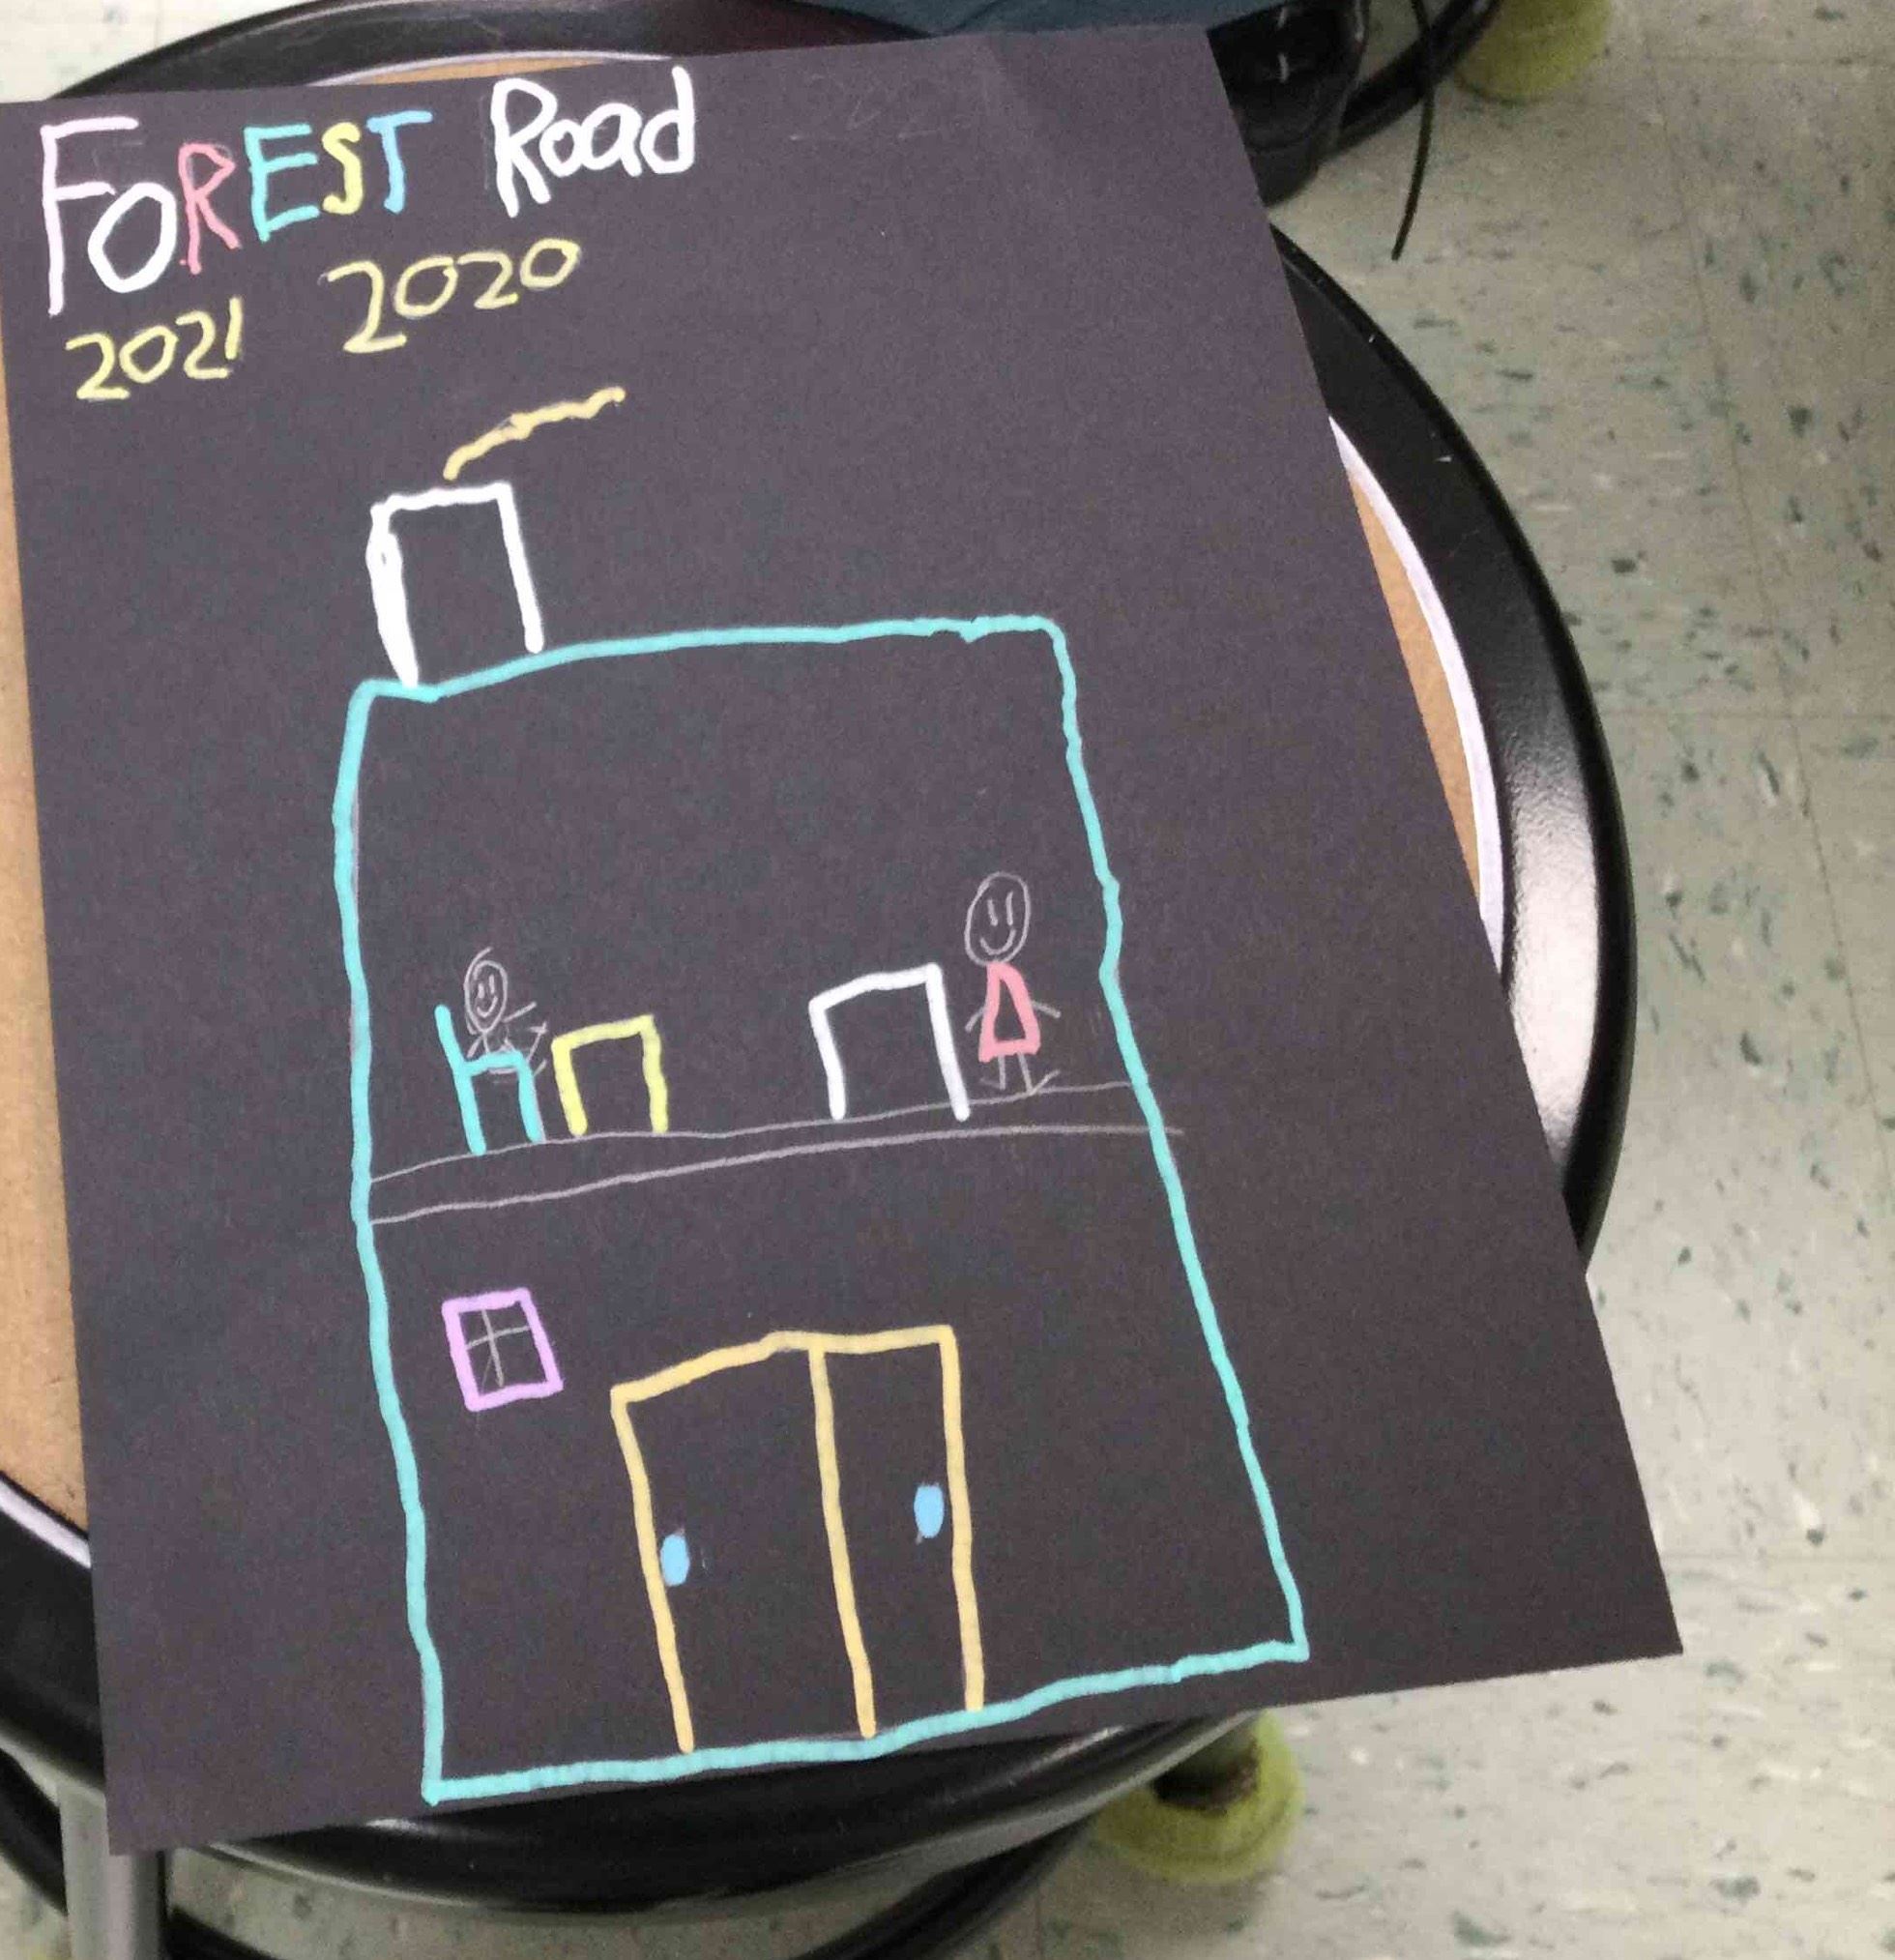 FOREST Road
2021 2020